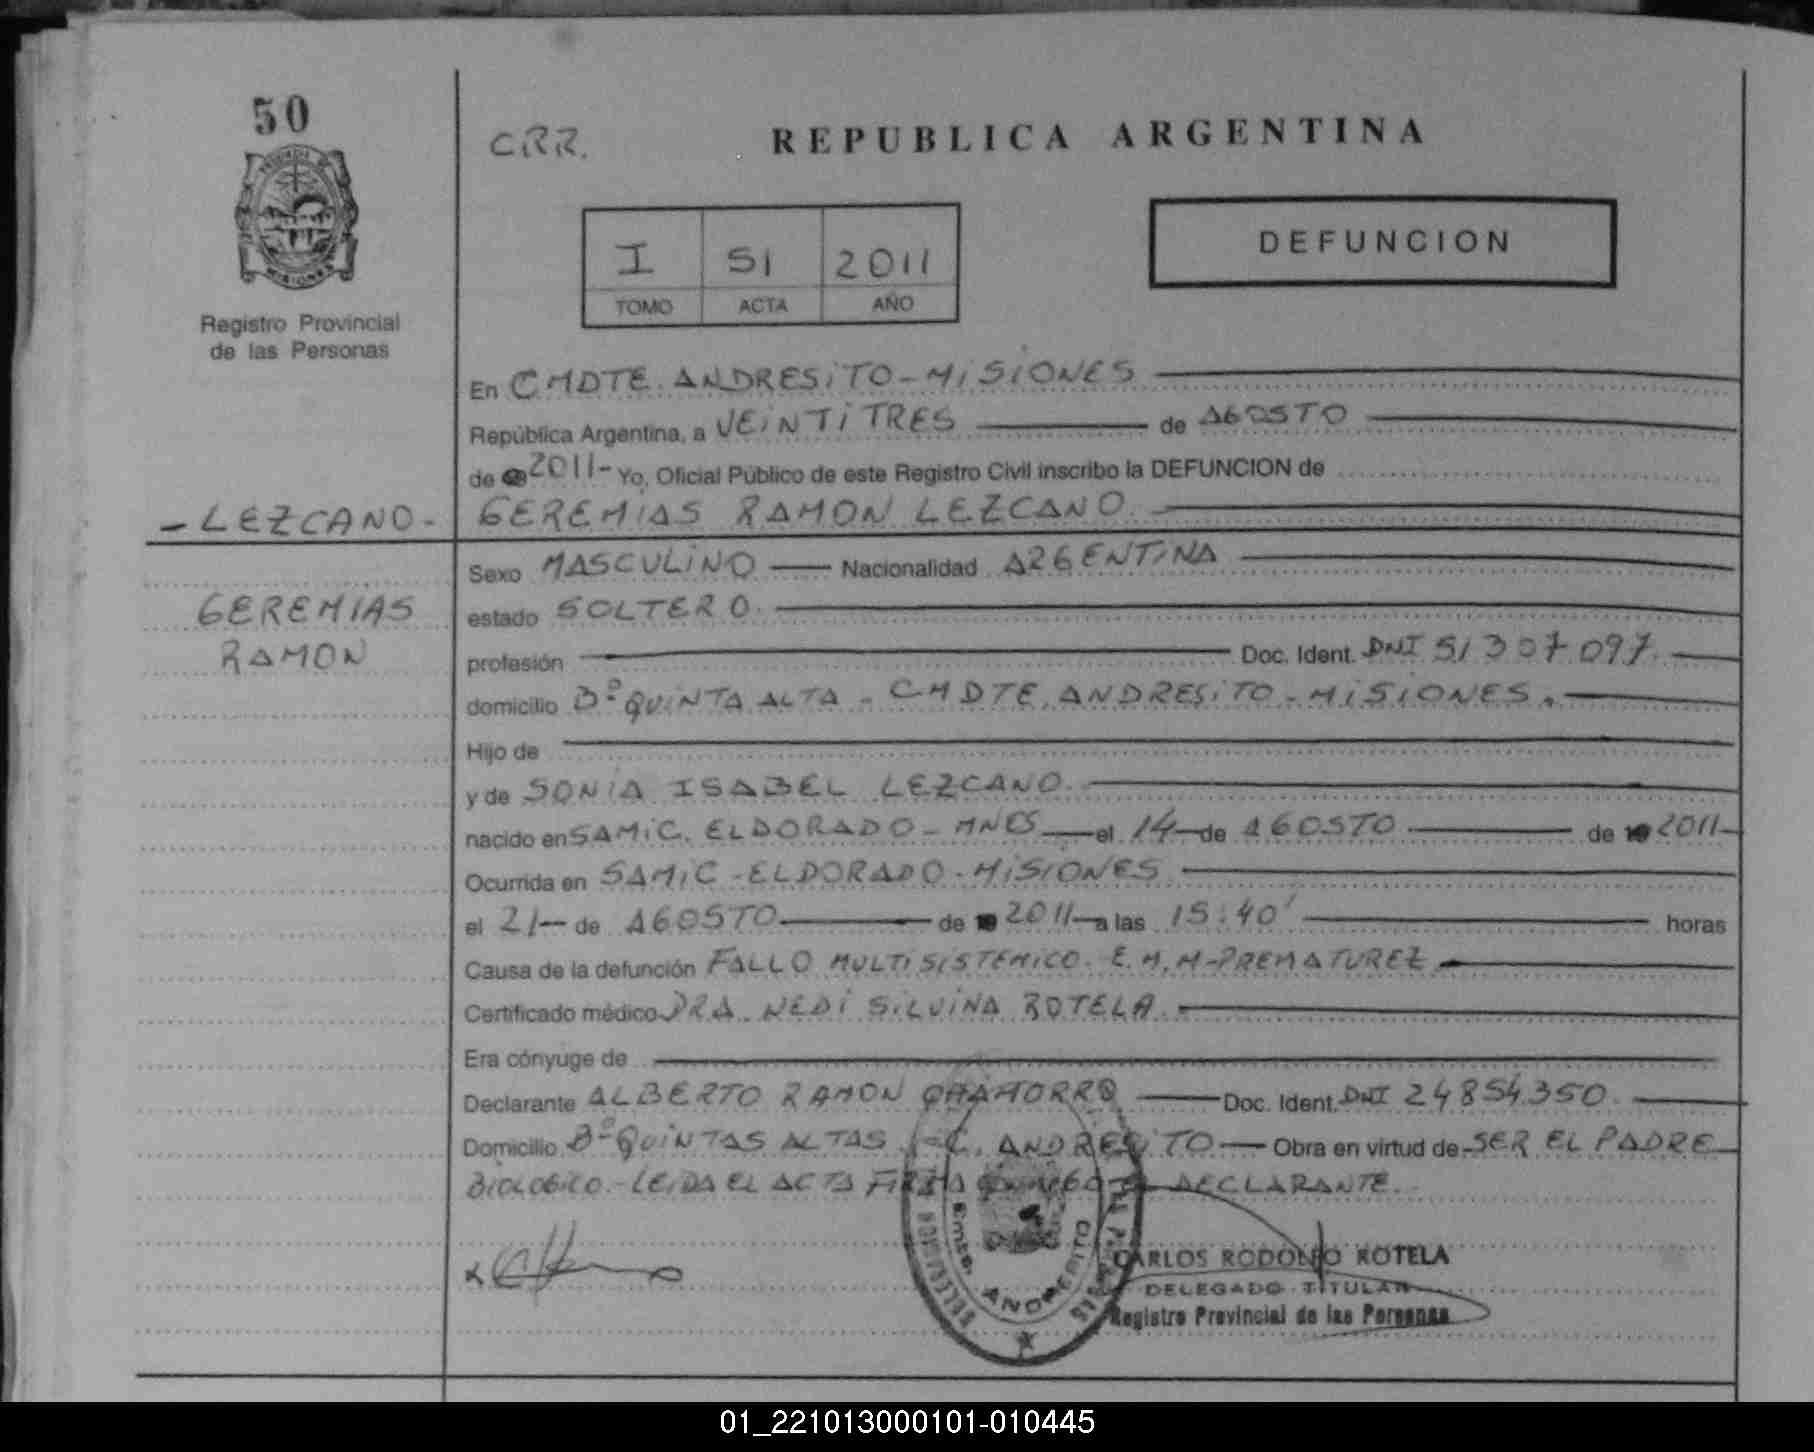 50
CRR.
REPUBLICA ARGENTINA
I 51 2011
TOMO ACTA AÑO
DEFUNCION
MISIONES
Registro Provincial
de las Personas
En CMDTE. ANDRESITO - MISIONES
República Argentina, a VEINTITRES de AGOSTO
de 2011- Yo, Oficial Público de este Registro Civil inscribo la DEFUNCION de
- LEZCANO -
GEREMIAS RAMON LEZCANO.
Sexo MASCULINO Nacionalidad ARGENTINA
GEREMIAS
RAMON
estado SOLTERO.
profesión Doc. Ident. DNI 51307097.
domicilio Bº QUINTA ALTA - CMDTE. ANDRESITO - MISIONES.
Hijo de
y de SONIA ISABEL LEZCANO.
nacido en SAMIC. ELDORADO - MNES el 14 de AGOSTO de 2011
Ocurrida en SAMIC - ELDORADO - MISIONES
el 21 de AGOSTO de 2011 a las 15:40' horas
Causa de la defunción FALLO MULTISISTEMICO. E.M.M-PREMATUREZ
Certificado médico DRA. NEDI SILVINA ROTELA.
Era cónyuge de
Declarante ALBERTO RAMON CHAMORRO Doc. Ident. DNI 24854350.
Domicilio Bº QUINTAS ALTAS - C. ANDRESITO Obra en virtud de SER EL PADRE
BIOLOGICO. - LEIDA EL ACTA FIRMA DECLARANTE.
Cmte. ANDRESITO
CARLOS RODOLFO ROTELA
DELEGADO TITULAR
Registro Provincial de las Personas
01_221013000101-010445